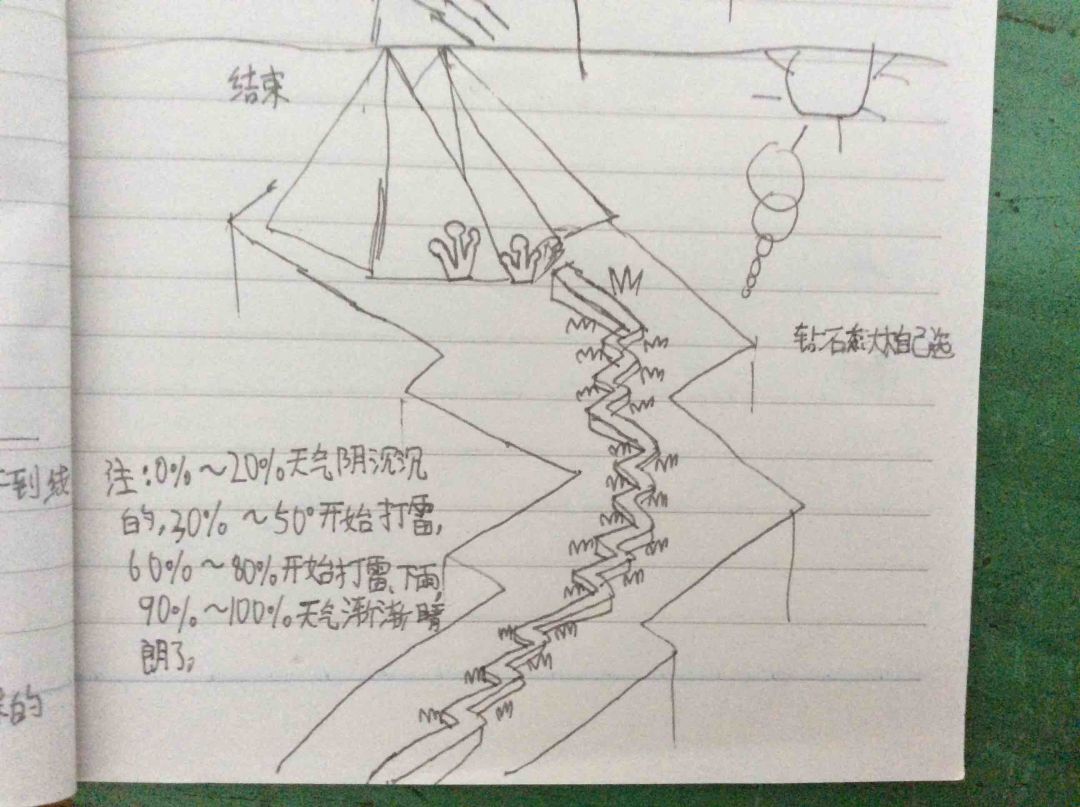 结束
钻石态太大自己选
注：0%～20%天气阴沉沉
的,30%～50°开始打雷,
60%～80%开始打雷、下雨,
90%～100%天气渐渐晴
朗了。
到线
的